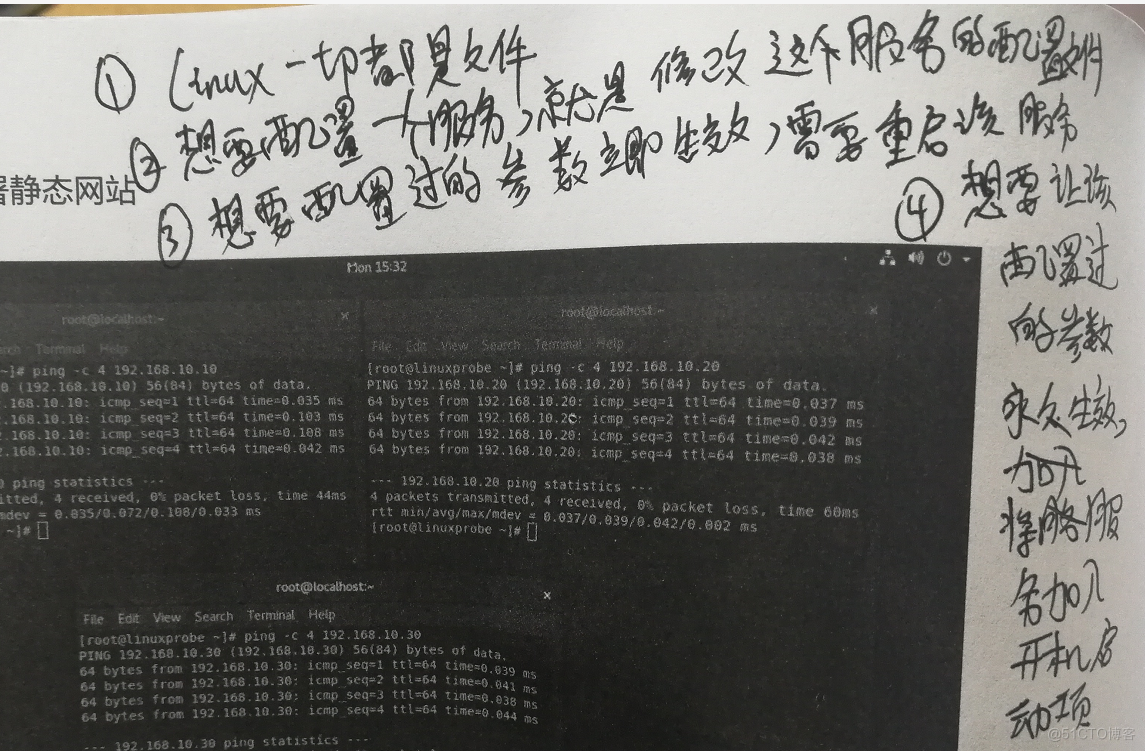 ① Linux 一切都是文件
② 想要配置一个服务,就是 修改 这个服务的配置文件
③ 想要配置过的参数立即生效,需要重启该服务
④ 想要让该
配置过
的参数
永久生效,
将
服
务加入
开机启
动项
署静态网站
Mon 15:32
root@localhost:~
Terminal Help
~]# ping -c 4 192.168.10.10
(192.168.10.10) 56(84) bytes of data.
.168.10.10: icmp_seq=1 ttl=64 time=0.035 ms
.168.10.10: icmp_seq=2 ttl=64 time=0.103 ms
.168.10.10: icmp_seq=3 ttl=64 time=0.108 ms
.168.10.10: icmp_seq=4 ttl=64 time=0.042 ms
ping statistics ---
itted, 4 received, 0% packet loss, time 44ms
mdev = 0.035/0.072/0.108/0.033 ms
~]#
root@localhost:~
File Edit View Search Terminal Help
[root@linuxprobe ~]# ping -c 4 192.168.10.20
PING 192.168.10.20 (192.168.10.20) 56(84) bytes of data.
64 bytes from 192.168.10.20: icmp_seq=1 ttl=64 time=0.037 ms
64 bytes from 192.168.10.20: icmp_seq=2 ttl=64 time=0.039 ms
64 bytes from 192.168.10.20: icmp_seq=3 ttl=64 time=0.042 ms
64 bytes from 192.168.10.20: icmp_seq=4 ttl=64 time=0.038 ms
--- 192.168.10.20 ping statistics ---
4 packets transmitted, 4 received, 0% packet loss, time 60ms
rtt min/avg/max/mdev = 0.037/0.039/0.042/0.002 ms
[root@linuxprobe ~]#
root@localhost:~
File Edit View Search Terminal Help
[root@linuxprobe ~]# ping -c 4 192.168.10.30
PING 192.168.10.30 (192.168.10.30) 56(84) bytes of data.
64 bytes from 192.168.10.30: icmp_seq=1 ttl=64 time=0.039 ms
64 bytes from 192.168.10.30: icmp_seq=2 ttl=64 time=0.041 ms
64 bytes from 192.168.10.30: icmp_seq=3 ttl=64 time=0.038 ms
64 bytes from 192.168.10.30: icmp_seq=4 ttl=64 time=0.044 ms
--- 192.168.10.30 ping statistics ---
@51CTO博客